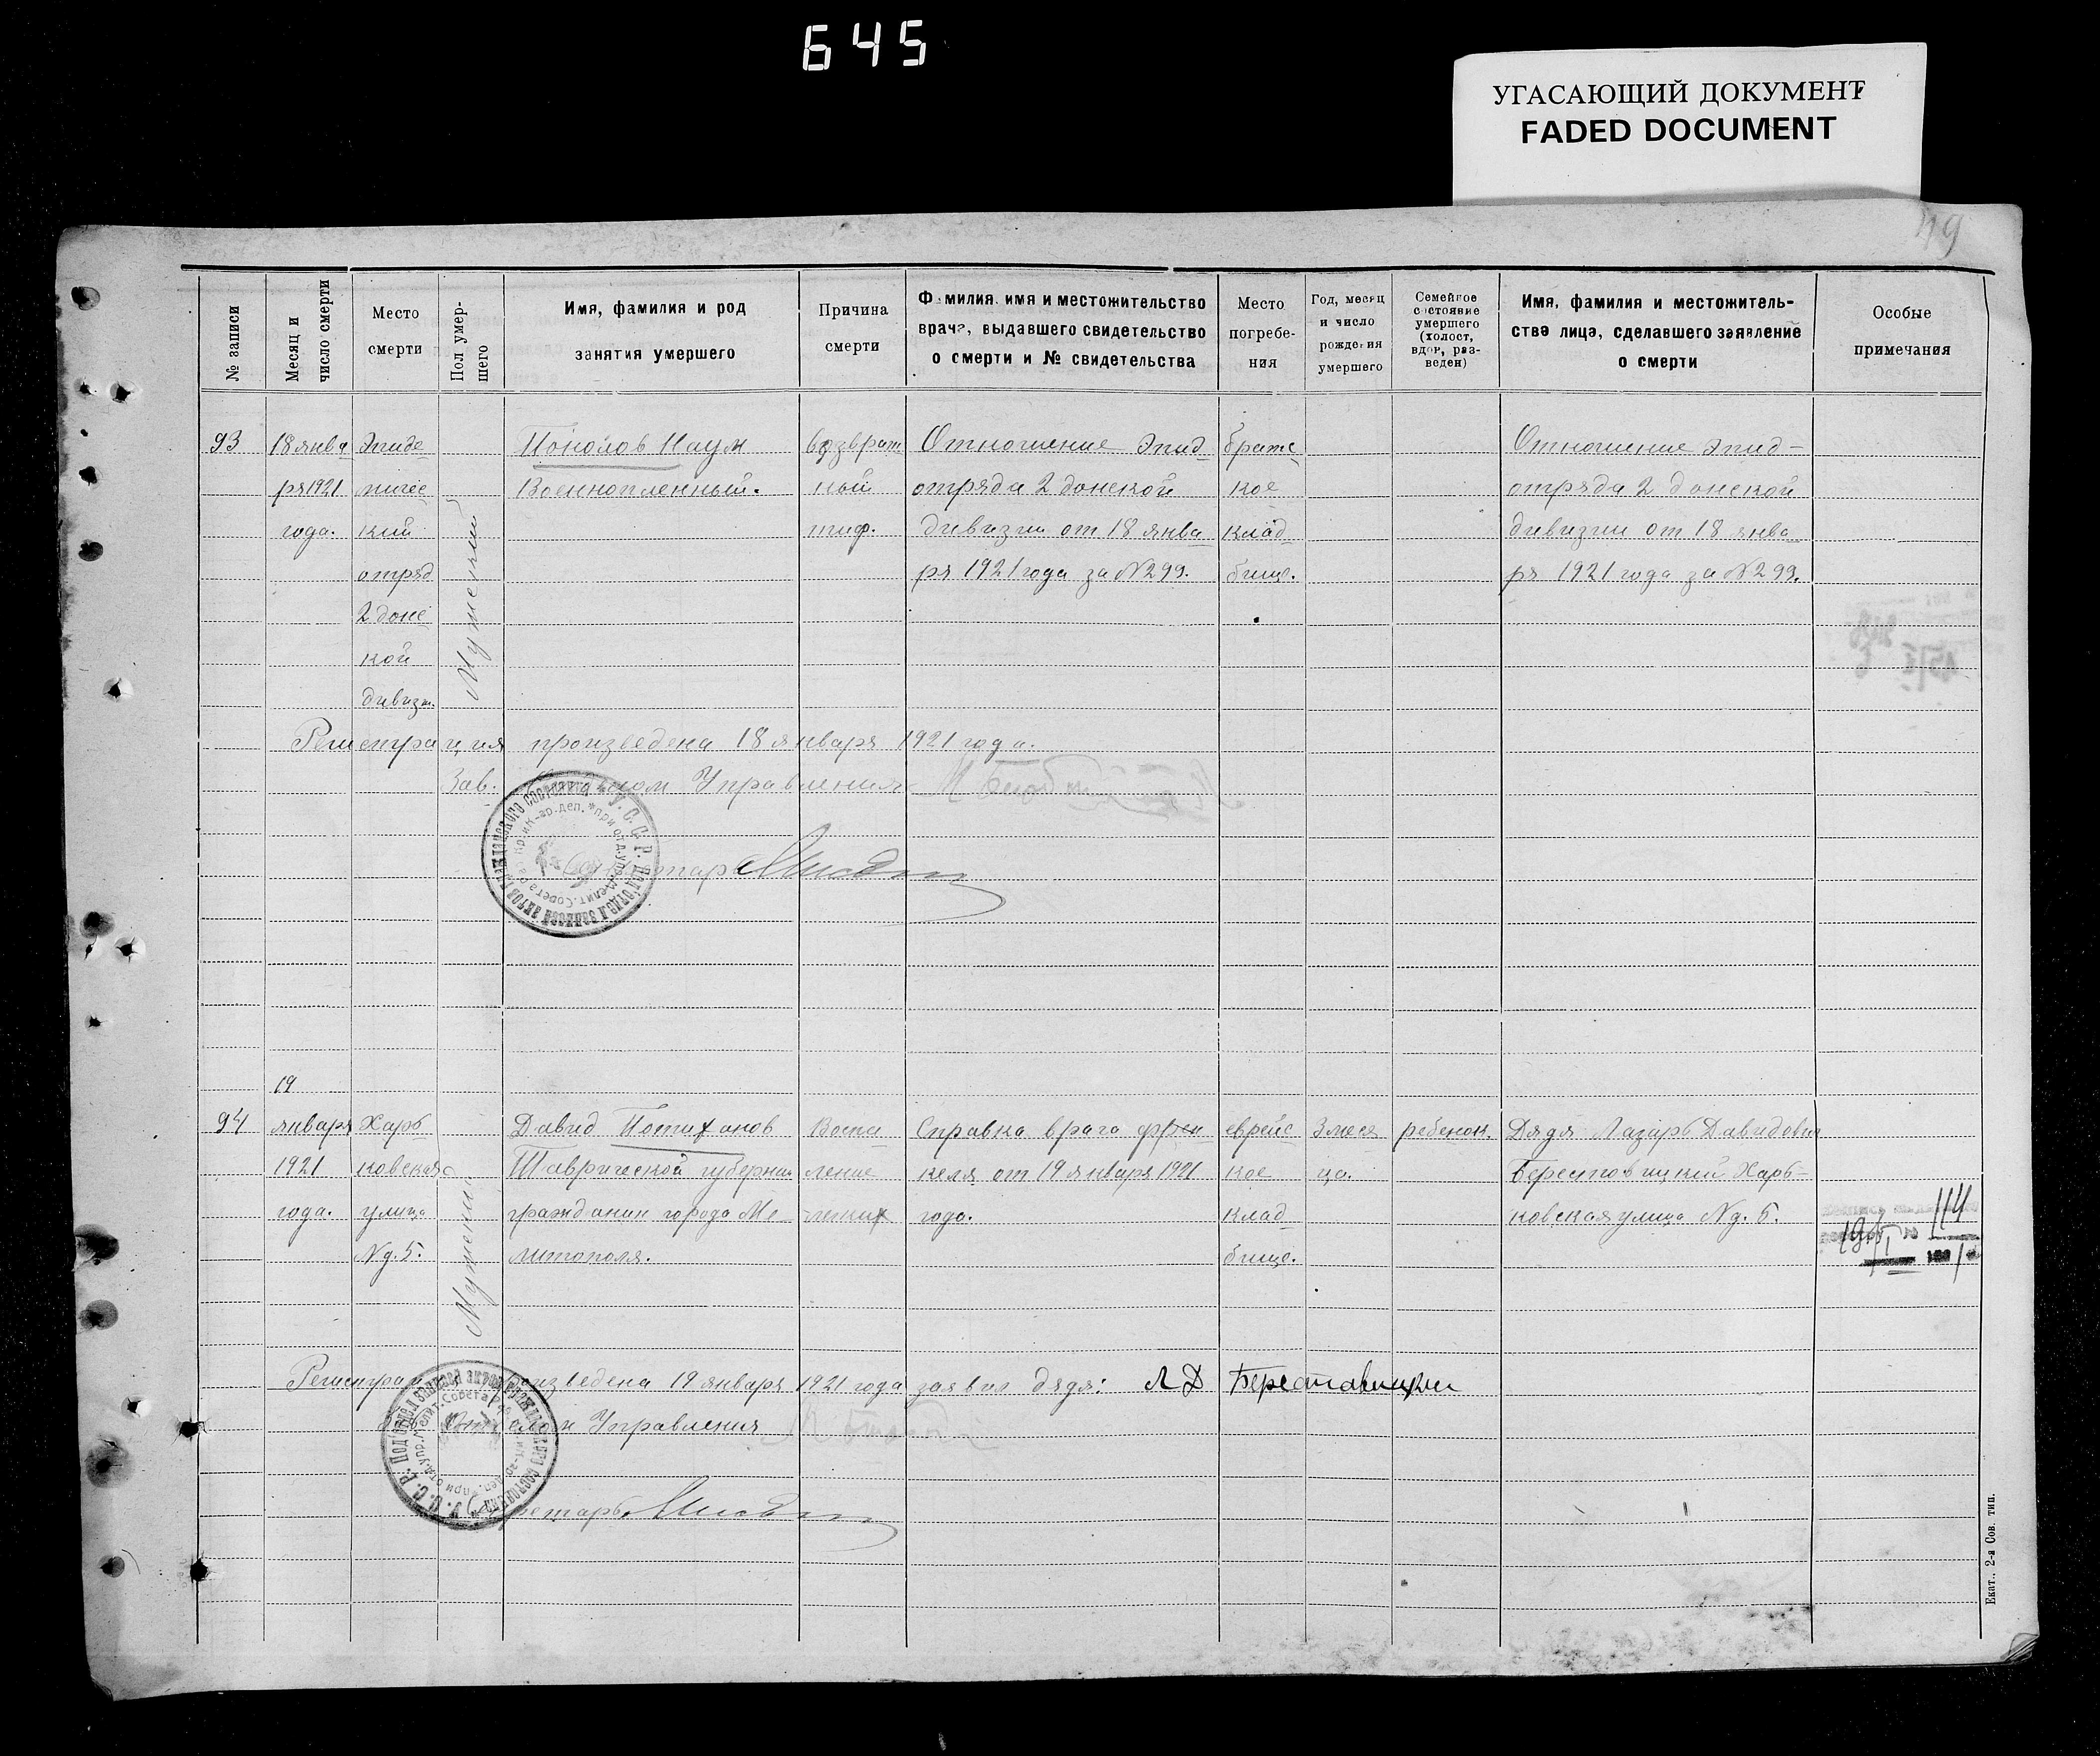 645
УГАСАЮЩИЙ ДОКУМЕНТ
FADED DOCUMENT
49
№ записи
Месяц и число смерти
Место смерти
Пол умершего
Имя, фамилия и род занятия умершего
Причина смерти
Фамилия, имя и местожительство врача, выдавшего свидетельство о смерти и № свидетельства
Место погребения
Год, месяц и число рождения умершего
Семейное состояние умершего (холост, вдов, разведен)
Имя, фамилия и местожительство лица, сделавшего заявление о смерти
Особые примечания
93
18 янва
ря 1921
года.
Эпиде
мичес
кий
отряд
2 донс
кой
дивизи.
Мужской
Наум
Военнопленный.
Возврат
ный
тиф.
Отношение Эпид
отряда 2 донской
дивизии от 18 янва
ря 1921 года за №299.
Братс
кое
клад
бище.
Отношение Эпид-
отряда 2 донской
дивизии от 18 янва
ря 1921 года за №299.
Регистрация произведена 18 января 1921 года.
Зав. Управления
94
19
января
1921
года.
Харь
ковская
улица
№ д. 5.
Мужской
Давид
Таврической губернии
гражданин города Ме
литополя.
Воспа
ление
легких
Справка врача Френ
келя от 19 января 1921
года.
еврейс
кое
клад
бище.
3 меся
ца.
ребенок.
Дядя Лазарь Давидович
Берестовицкий Харь-
ковская улица № д. 5.
114
19/I
Регистрация произведена 19 января 1921 года заявил дядя: Л Д Берестовицкий
Управления
Секретарь
Екат., 2-я Сов. тип.